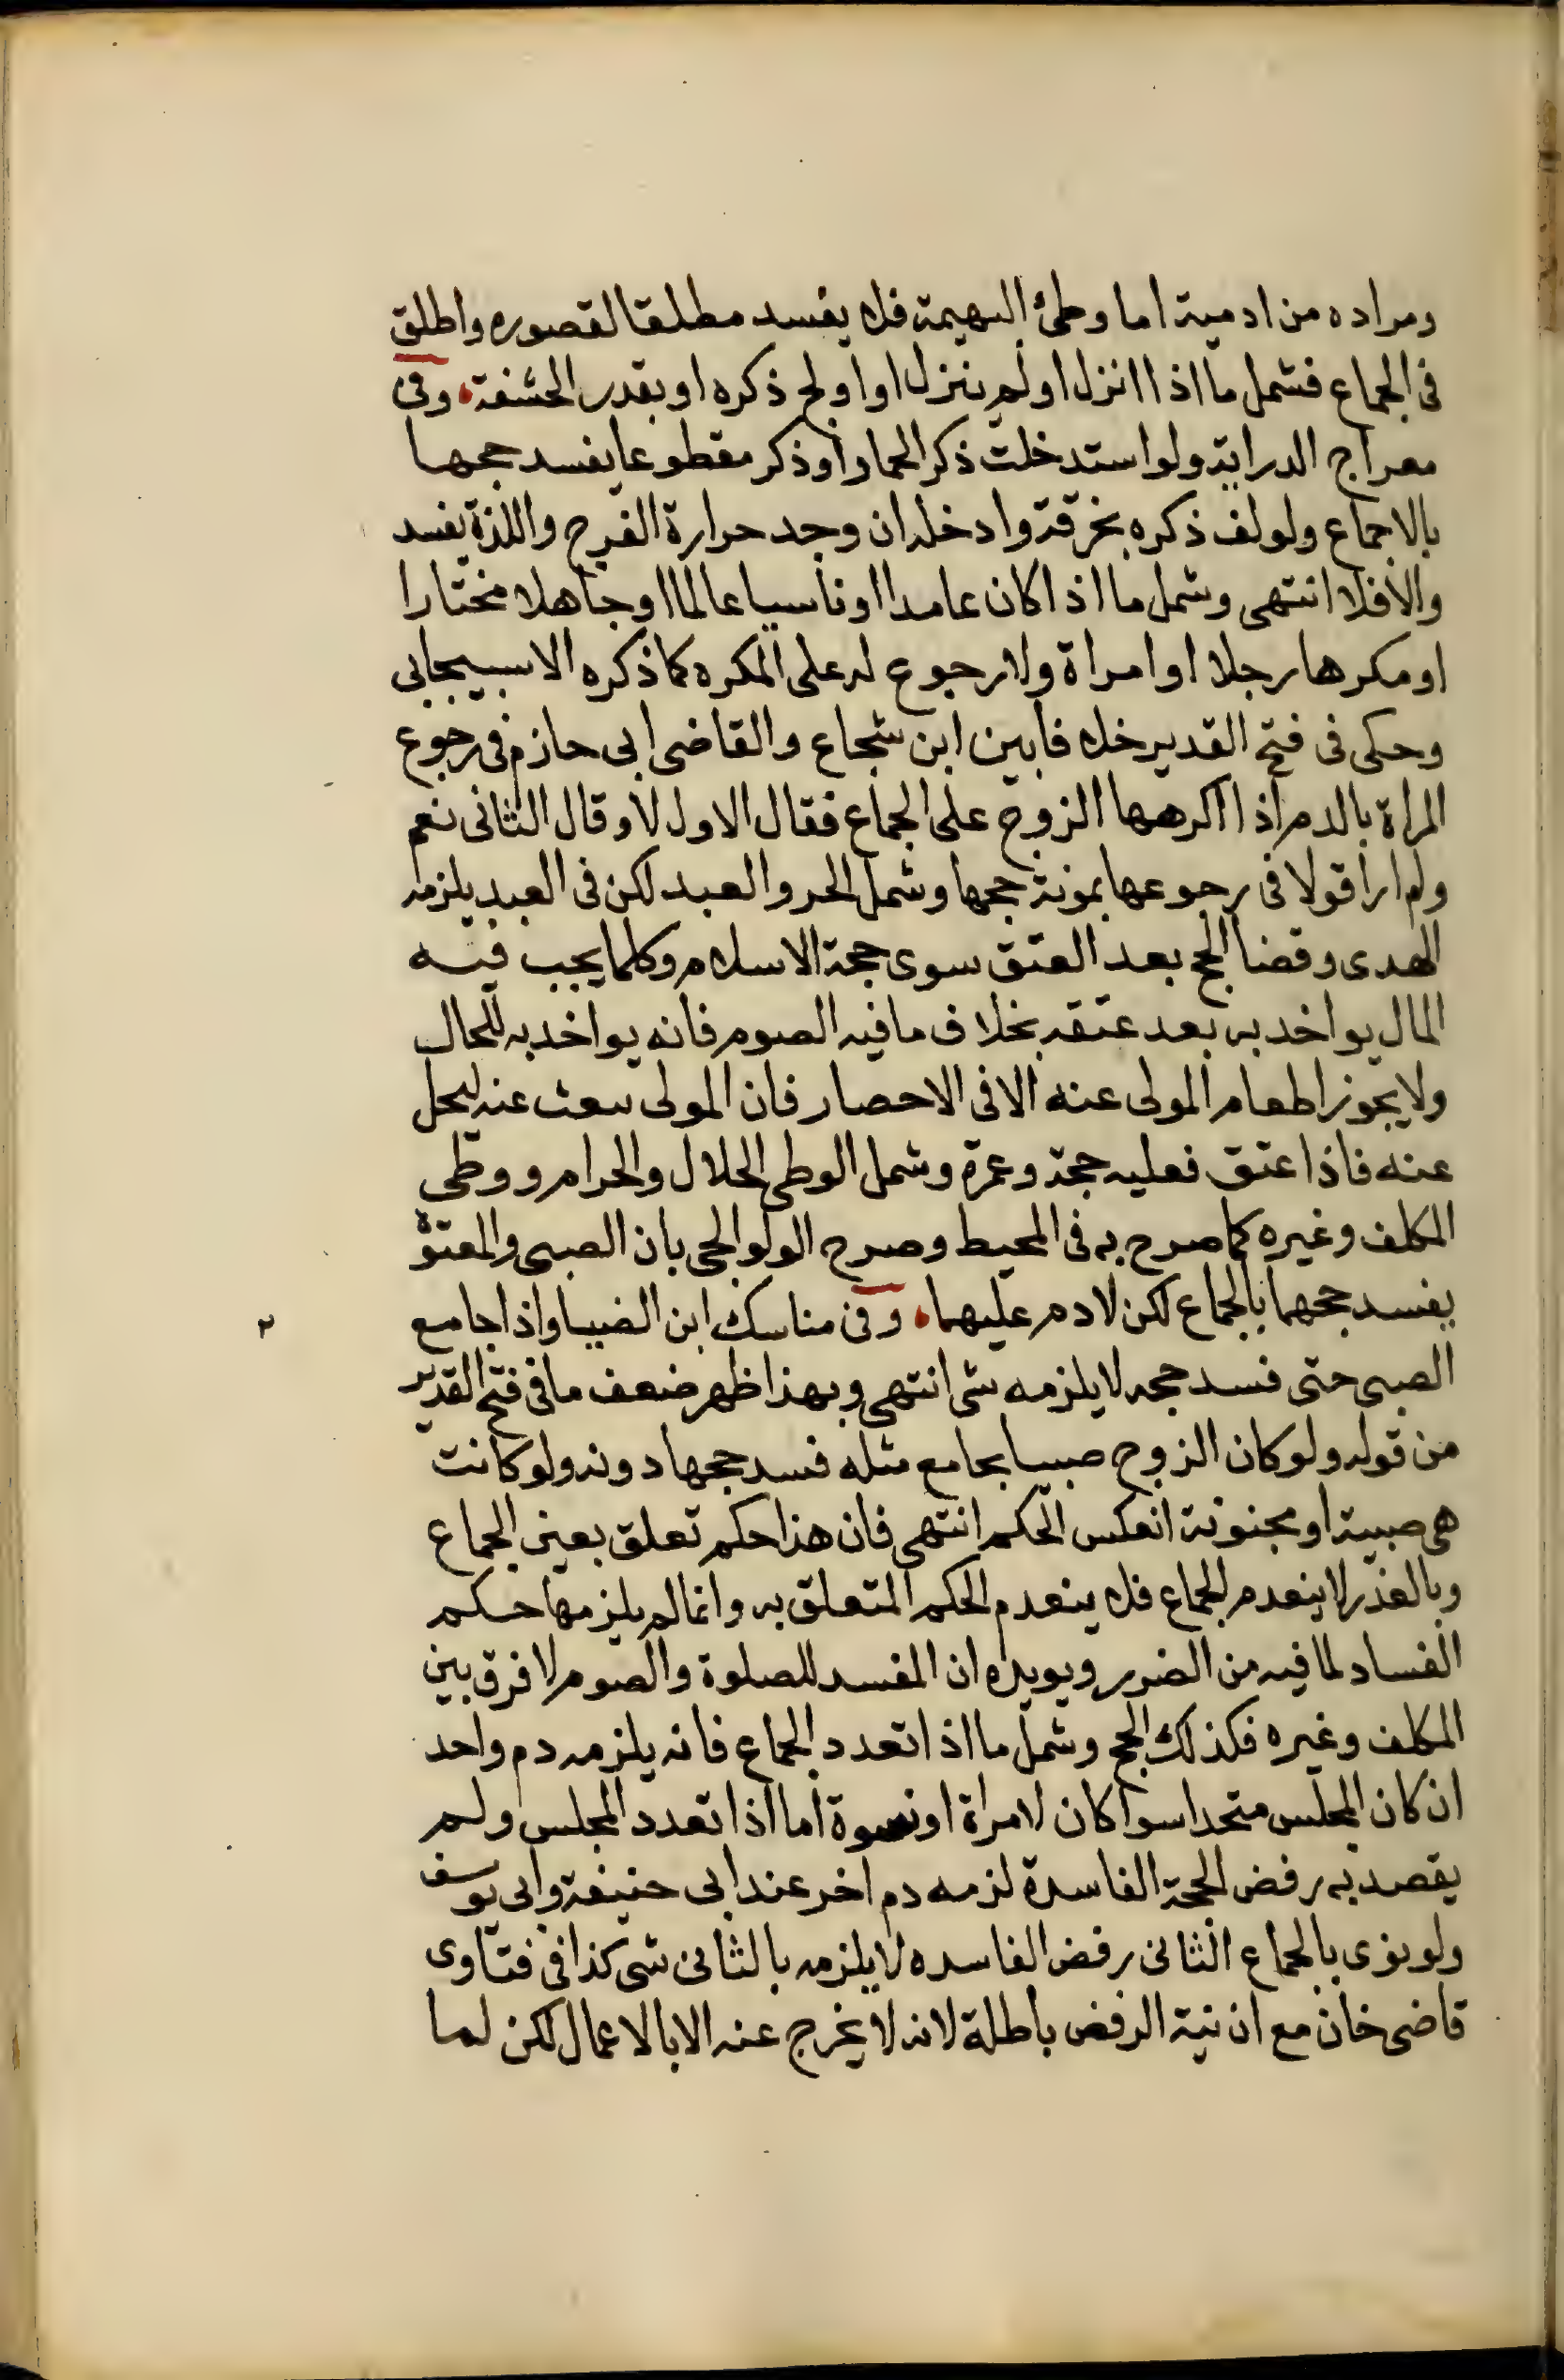 ومراده من ادمية اما وطئ البهيمة فلا يفسد مطلقا لقصوره واطلق
فى الجماع فشمل ما اذا انزل او لم ينزل او اولج ذكره او بقدر الحشفة وفى
معراج الدراية ولو استدخلت ذكر الحمار او ذكر مقطوعا يفسد حجها
بالاجماع ولو لف ذكره بخرقة وادخله ان وجد حرارة الفرج واللذة يفسد
والا فلا انتهى وشمل ما اذا كان عامدا او ناسيا عالما او جاهلا مختارا
او مكرها رجلا او امراة ولا رجوع له على المكره كما ذكره الاسبيجابى
وحكى فى فتح القدير خلافا بين ابن شجاع والقاضى ابى حازم فى رجوع
المراة بالدم اذا اكرهها الزوج على الجماع فقال الاول لا وقال الثانى نعم
ولم ار اقولا فى رجوعها بمونة حجها وشمل الحر والعبد لكن فى العبد يلزمه
الهدى وقضا الحج بعد العتق سوى حجة الاسلام وكلما يجب فيه
المال يواخد به بعد عتقه بخلاف ما فيه الصوم فانه يواخد به للحال
ولا يجوز اطعام المولى عنه الا فى الاحصار فان المولى يبعث عنه ليحل
عنه فاذا عتق فعليه حجة وعمرة وشمل الوطى الحلال والحرام ووطى
المكلف وغيره كما صرح به فى المحيط وصرح الولوالجى بان الصبى والمعتوه
يفسد حجهما بالجماع لكن لا دم عليهما وفى مناسك ابن الضيا واذا جامع
٢
الصبى حتى فسد حجه لا يلزمه شى انتهى وبهذا ظهر ضعف ما فى فتح القدير
من قوله ولو كان الزوج صبيا يجامع مثله فسد حجها دونه ولو كانت
هى صبية او مجنونة انعكس الحكم انتهى فان هذا حكم تعلق بعين الجماع
وبالعذر لا ينعدم الجماع فلا ينعدم الحكم المتعلق به وانما لم يلزمها حكم
الفساد لما فيه من الضرر ويويده ان المفسد للصلوة والصوم لا فرق بين
المكلف وغيره فكذلك الحج وشمل ما اذا تعدد الجماع فانه يلزمه دم واحد
ان كان المجلس متحدا سوا كان لامراة او نسوة اما اذا تعدد المجلس ولم
يقصد به رفض الحجة الفاسدة لزمه دم اخر عند ابى حنيفة وابى يوسف
ولو نوى بالجماع الثانى رفض الفاسده لا يلزمه بالثانى شى كذا فى فتاوى
قاضى خان مع ان نية الرفض باطلة لانه لا يخرج عنه الا بالاعمال لكن لما